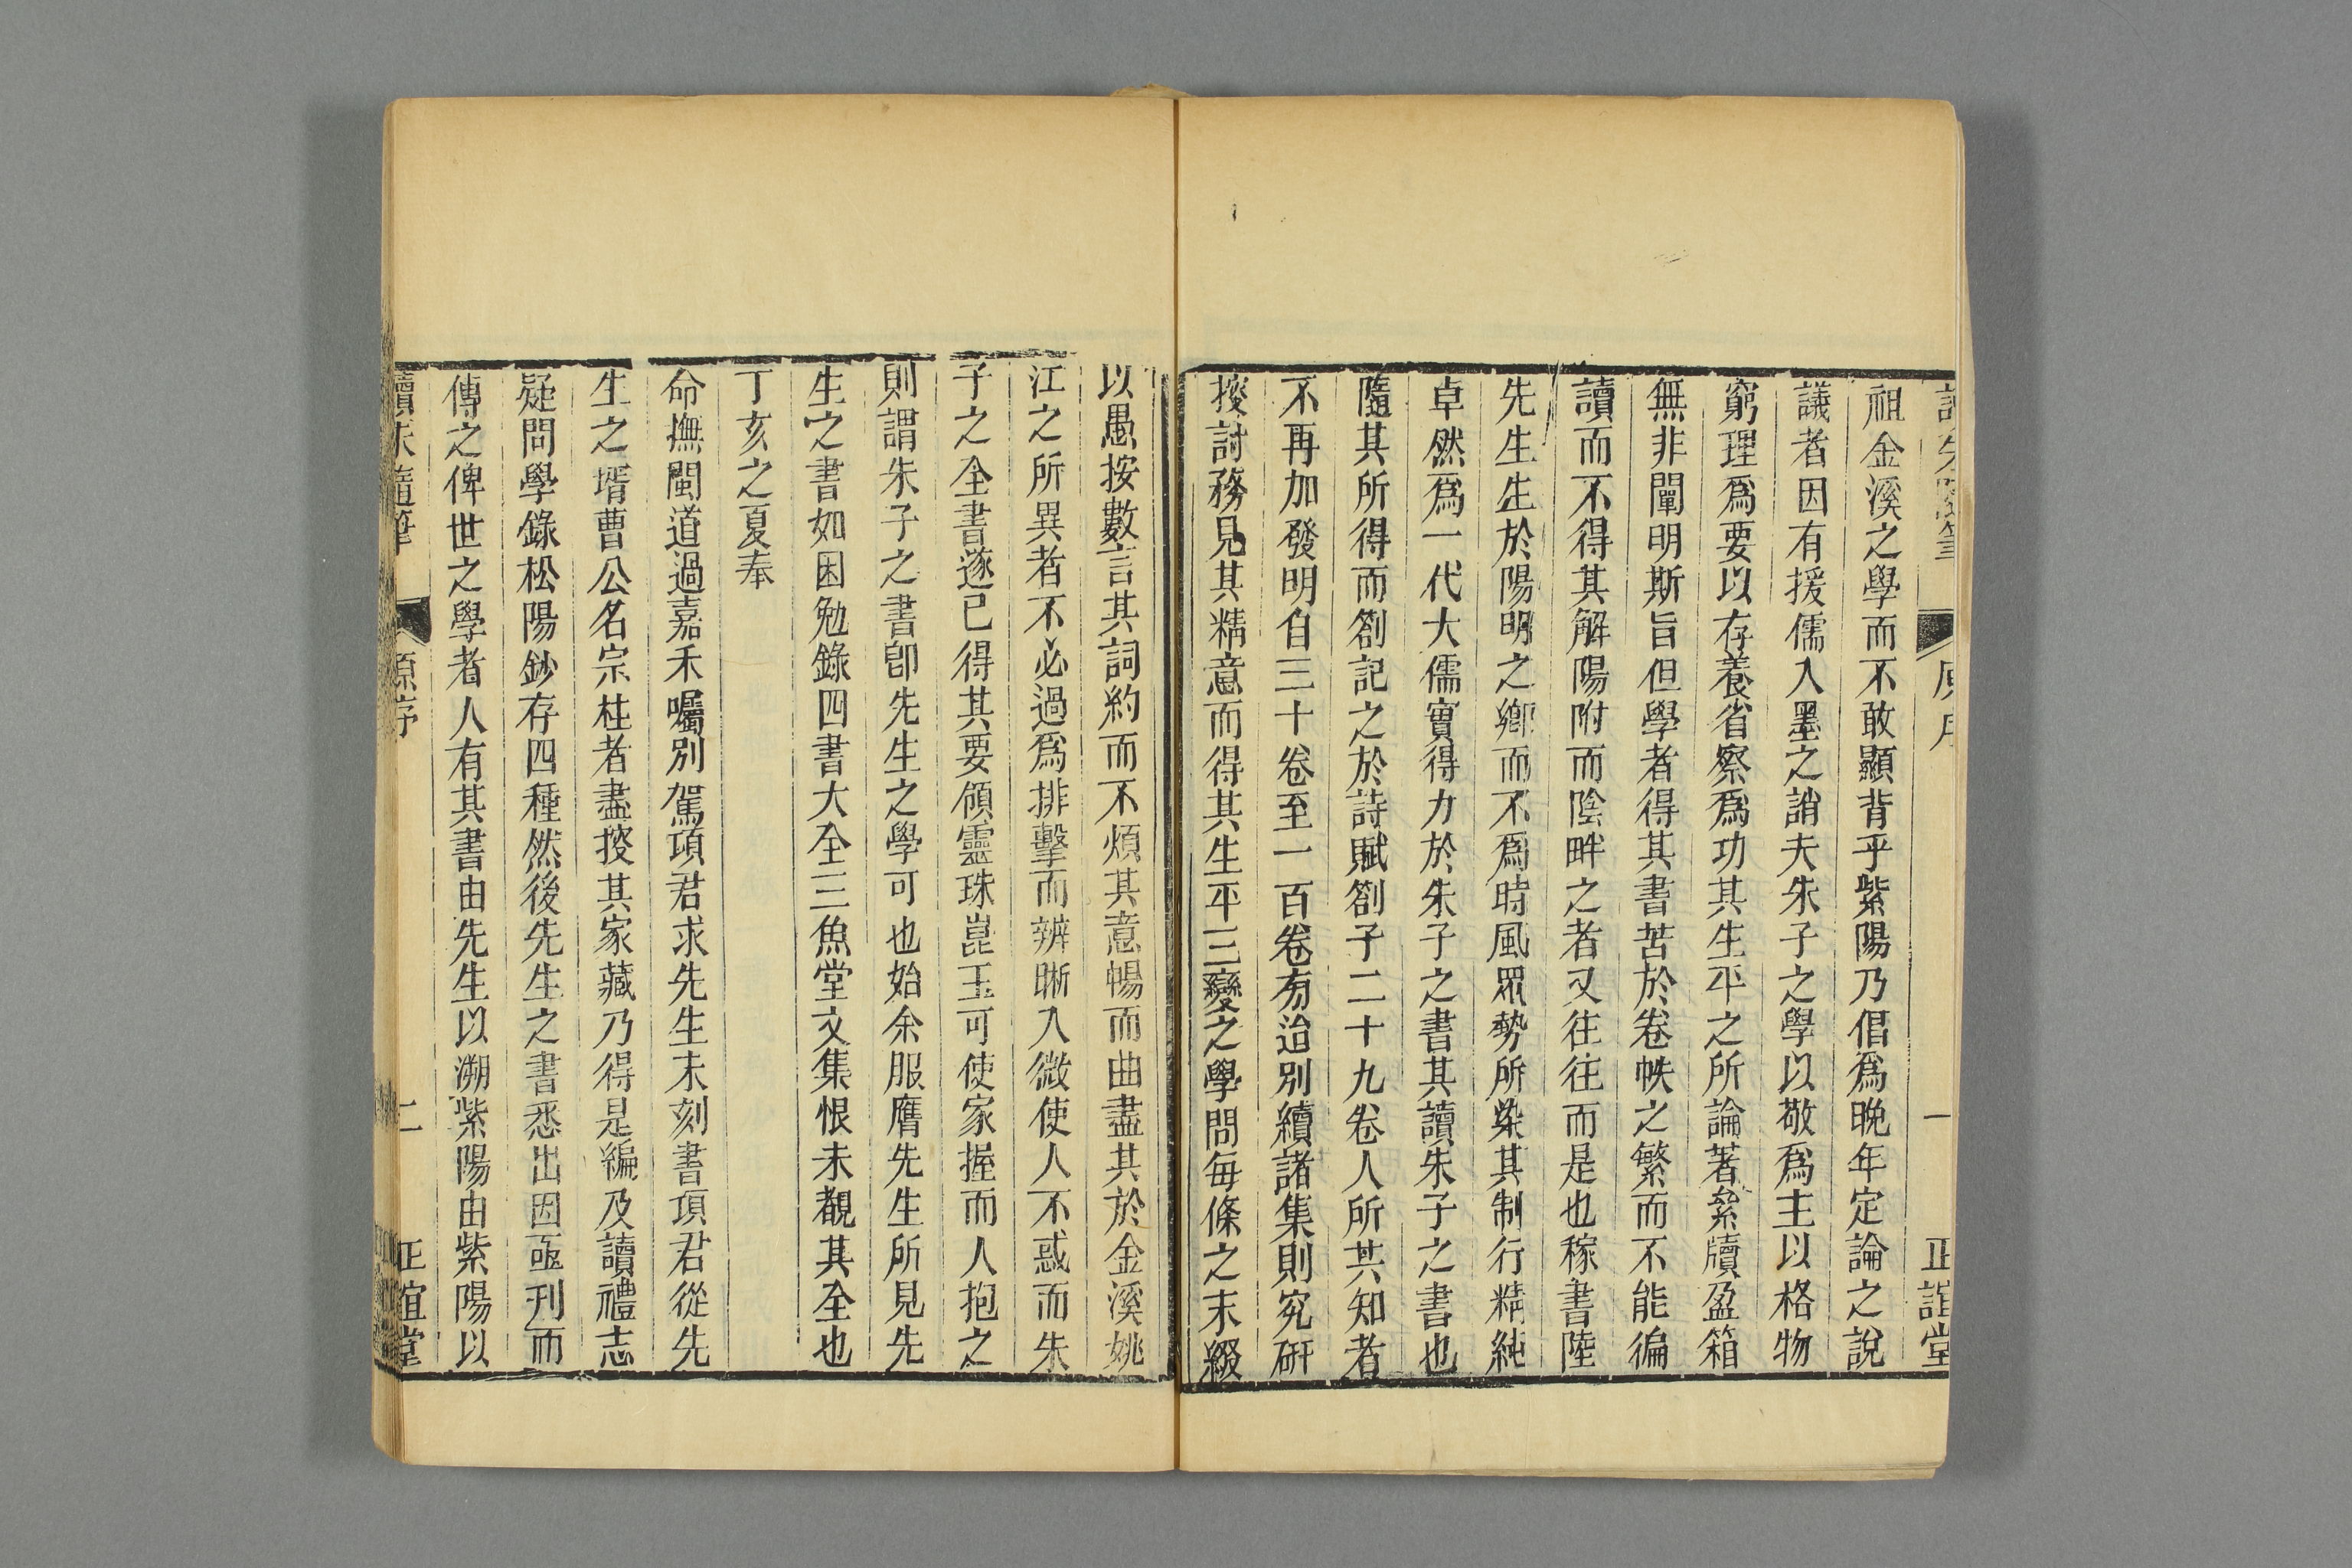 讀朱隨筆 原序 一 正誼堂
祖金溪之學而不敢顯背乎紫陽乃倡爲晚年定論之說
議者因有援儒入墨之誚夫朱子之學以敬爲主以格物
窮理爲要以存養省察爲功其生平之所論著絫牘盈箱
無非闡明斯旨但學者得其書苦於卷帙之繁而不能徧
讀而不得其解陽附而陰畔之者又往往而是也稼書陸
先生生於陽明之鄉而不爲時風眾勢所染其制行精純
卓然爲一代大儒實得力於朱子之書其讀朱子之書也
隨其所得而劄記之於詩賦劄子二十九卷人所共知者
不再加發明自三十卷至一百卷旁迨別續諸集則究研
挍討務見其精意而得其生平三變之學問每條之末綴
以愚按數言其詞約而不煩其意暢而曲盡其於金溪姚
江之所異者不必過爲排擊而辨晰入微使人不惑而朱
子之全書遂已得其要領靈珠崑玉可使家握而人抱之
則謂朱子之書卽先生之學可也始余服膺先生所見先
生之書如困勉錄四書大全三魚堂文集恨未覩其全也
丁亥之夏奉
命撫閩道過嘉禾囑別駕項君求先生未刻書項君從先
生之壻曹公名宗柱者盡挍其家藏乃得是編及讀禮志
疑問學錄松陽鈔存四種然後先生之書悉出因亟刊而
傳之俾世之學者人有其書由先生以溯紫陽由紫陽以
讀朱隨筆 原序 二 正誼堂